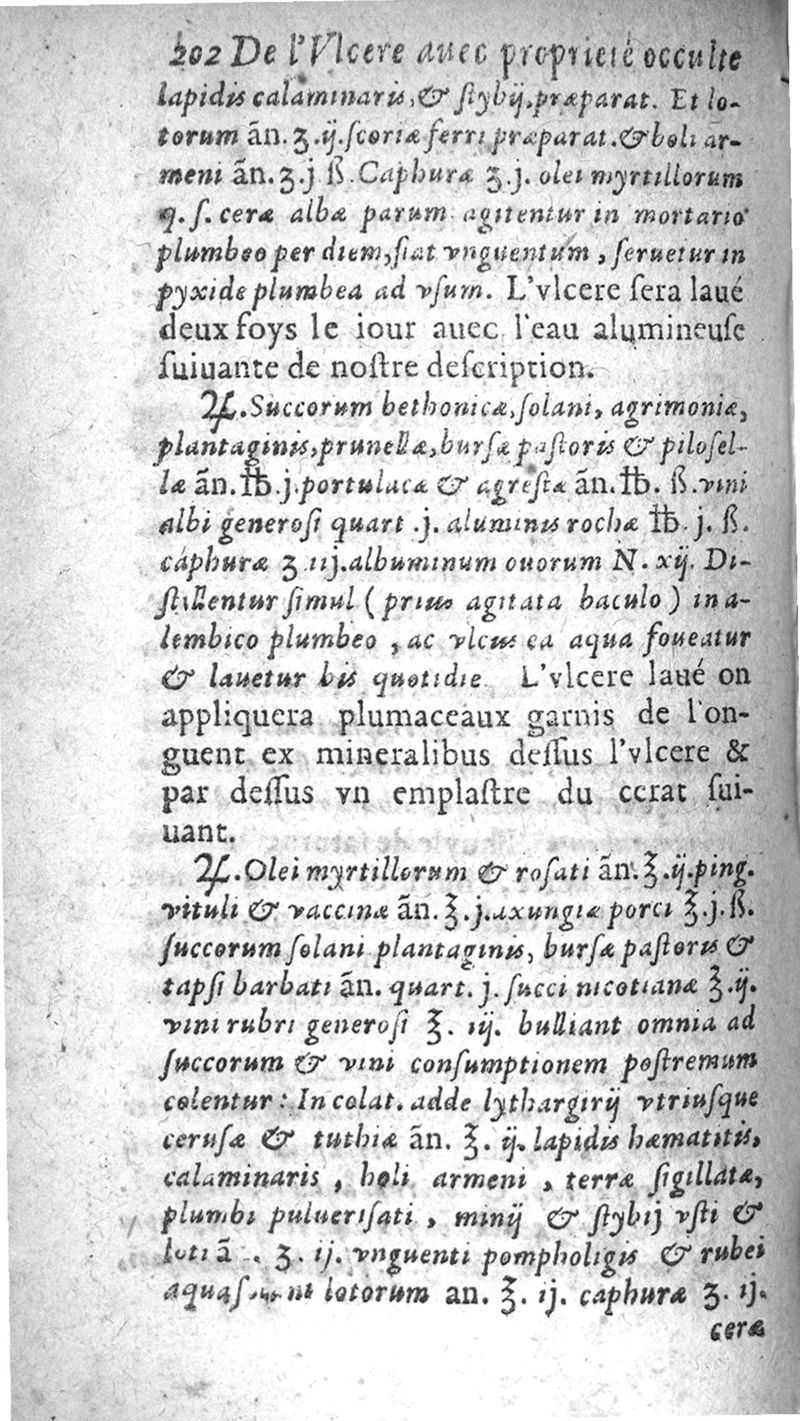 202 De l'Vlcere auec proprieté occulte
lapidis calaminaris, & ſtybij, præparat. Et lo-
torum āñ. ʒ.ij. ſcoriæ ferri præparat. & boli ar-
meni āñ. ʒ.j ß. Caphuræ ʒ.j. olei myrtillorum
q. ſ. ceræ albæ parum agitentur in mortario
plumbeo per diem, fiat vnguentum, ſeruetur in
pyxide plumbea ad vſum. L'vlcere ſera laué
deux foys le iour auec l'eau alumineuſe
ſuiuante de noſtre deſcription.
♃. Succorum bethonicæ, ſolani, agrimoniæ,
plantaginis, prunellæ, burſæ paſtoris & piloſel-
læ āñ. ℔.j. portulacæ & agreſtæ āñ. ℔. ß. vini
albi generoſi quart .j. aluminis rochæ ℔ j. ß.
caphuræ ʒ iij. albuminum ouorum N. xij. Di-
ſtillentur ſimul (prius agitata baculo) in a-
lembico plumbeo, ac vlcus ea aqua foueatur
& lauetur bis quotidie. L'vlcere laué on
appliquera plumaceaux garnis de l'on-
guent ex mineralibus deſſus l'vlcere &
par deſſus vn emplaſtre du cerat ſui-
uant.
♃. Olei myrtillorum & roſati āñ. ℥.ij. ping.
vituli & vaccinæ āñ. ℥.j. axungiæ porci ℥.j. ß.
ſuccorum ſolani plantaginis, burſæ paſtoris &
tapſi barbati āñ. quart. j. ſucci nicotianæ ℥.ij.
vini rubri generoſi ℥. iij. bulliant omnia ad
ſuccorum & vini conſumptionem poſtremum
colentur: In colat. adde lythargirij vtriuſque
ceruſæ & tuthiæ āñ. ℥. ij. lapidis hæmatitis,
calaminaris, boli armeni, terræ ſigillatæ,
plumbi pulueriſati, minij & ſtybij vſti &
loti ā . ʒ. ij. vnguenti pompholigis & rubei
lotorum an. ℥. ij. caphuræ ʒ. ij.
ceræ